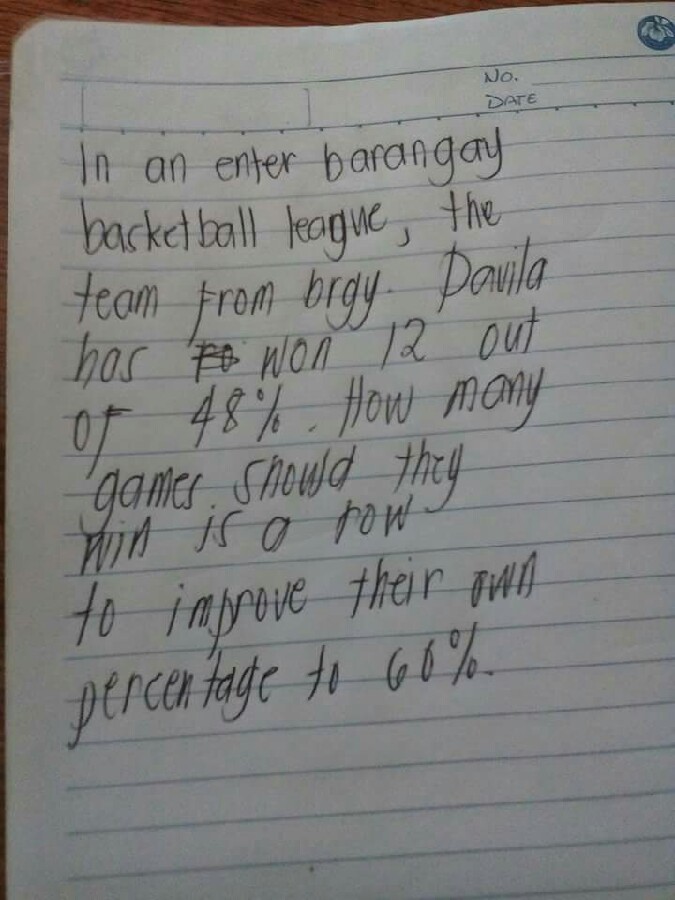 No.
DATE
In an enter barangay
basketball league, the
team from brgy. Davila
has won 12 out
of 48%. How many
games should they
win is a row
to improve their own
percentage to 60%.